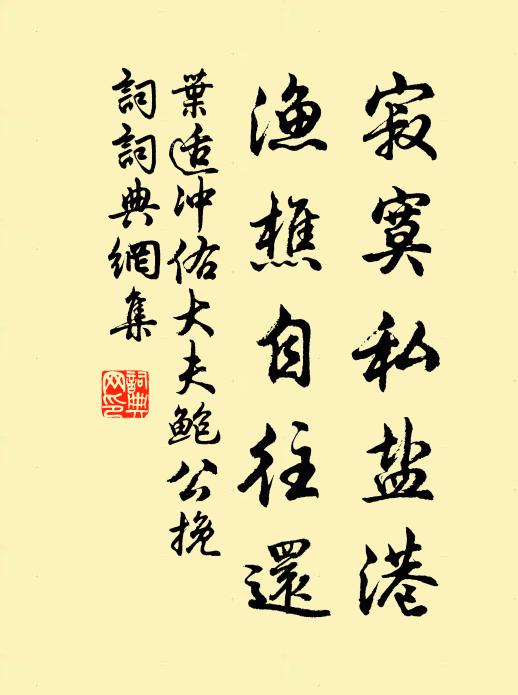 寂寞私盐港
漁樵自往還
葉适沖佑大夫鮑公挽
詞詞典網集
詞典网印